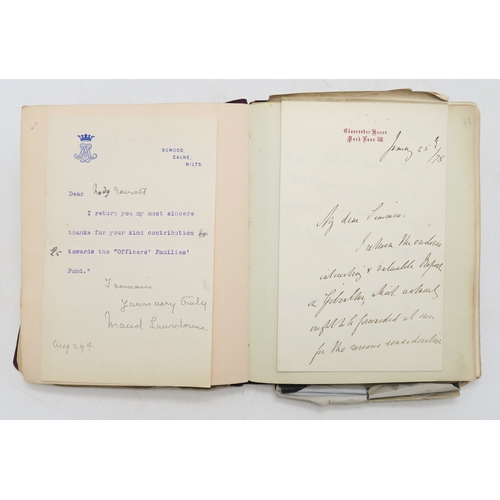 BOWOOD,
CALNE,
WILTS.
Dear Lady
I return you my most sincere
thanks for your kind contribution
towards the "Officers' Families'
Fund."
I remain
Yours very truly
Maud Lansdowne
Aug 29th
Gloucester House
Park Lane W.
25th
/78
My dear Simmons.
I return the enclosed
interesting & valuable Report
on Gibraltar
ought to be forwarded at once
for the serious consideration